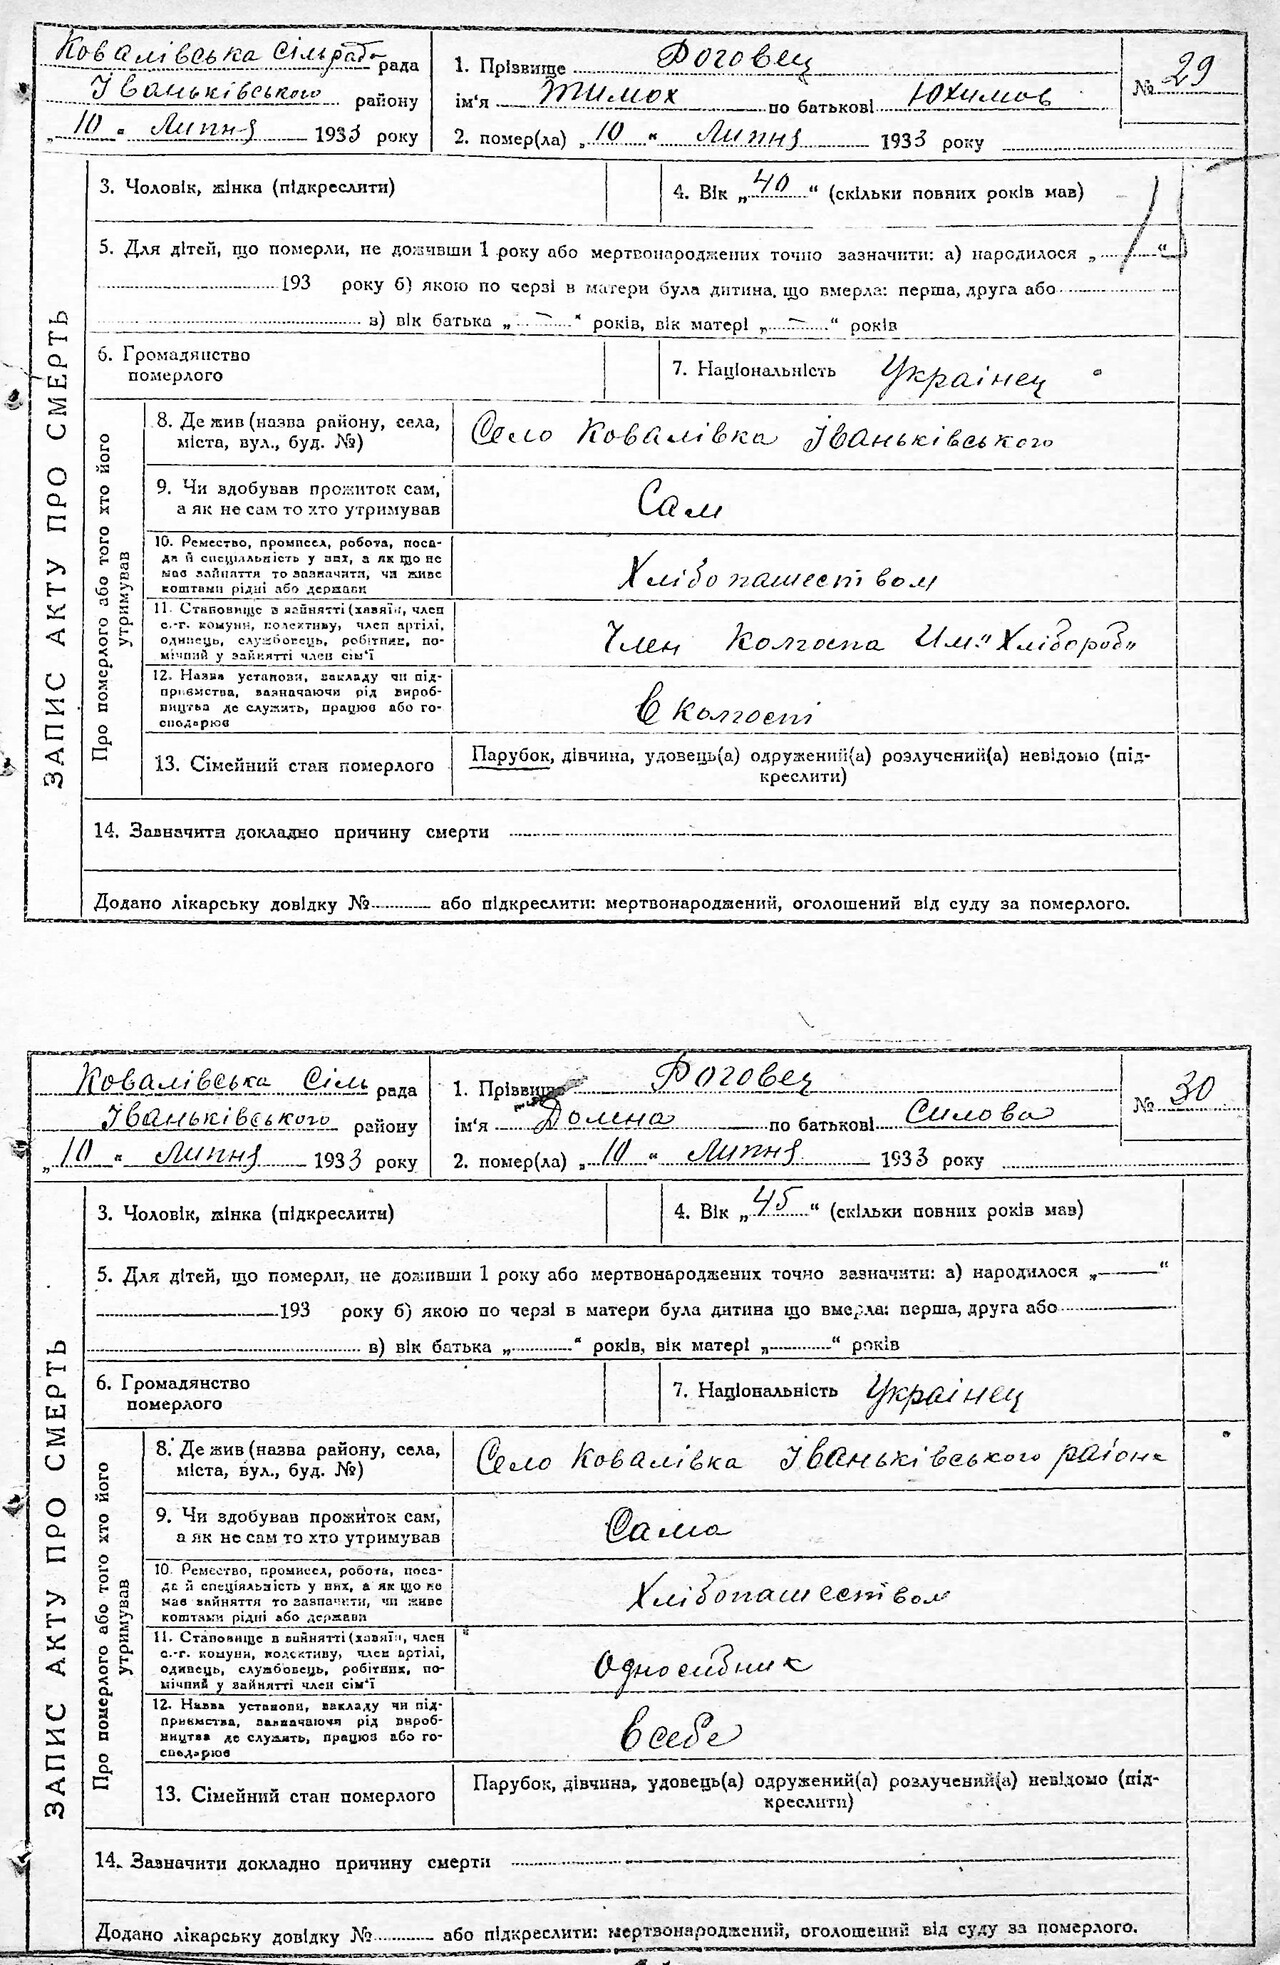 Ковалівська Сільрада рада
Іваньківського району
„10" Липня 1933 року
1. Прізвище Роговец
ім'я Тимох по батькові Юхимов
2. помер(ла) „10" Липня 1933 року
№ 29
3. Чоловік, жінка (підкреслити)
4. Вік „40" (скільки повних років мав)
5. Для дітей, що померли, не доживши 1 року або мертвонароджених точно зазначити: а) народилося „ "
193 року б) якою по черзі в матери була дитина, що вмерла: перша, друга або
в) вік батька „ — " років, вік матері „ — " років
6. Громадянство
померлого
7. Національність Украінец
ЗАПИС АКТУ ПРО СМЕРТЬ
Про померлого або того хто його
утримував
8. Де жив (назва району, села,
міста, вул., буд. №)
Село Ковалівка Іваньківського
9. Чи здобував прожиток сам,
а як не сам то хто утримував
Сам
10. Ремество, промисел, робота, поса-
да й спеціяльність у них, а як що не
має зайняття то зазначити, чи живе
коштами рідні або держави
Хлібопашеством
11. Становище в зайнятті (хазяїн, член
с.-г. комуни, колективу, член артілі,
одинець, службовець, робітник, по-
мічний у зайнятті член сім'ї
Член колгоспа Им." Хлібороб"
12. Назва установи, закладу чи під-
приємства, зазначаючи рід вироб-
ництва де служить, працює або го-
сподарює
В колгоспі
13. Сімейний стан померлого
Парубок, дівчина, удовець(а) одружений(а) розлучений(а) невідомо (під-
креслити)
14. Зазначити докладно причину смерти
Додано лікарську довідку № або підкреслити: мертвонароджений, оголошений від суду за померлого.
Ковалівська Сіль рада
Іваньківського району
„10" Липня 1933 року
1. Прізвище Роговец
ім'я Домна по батькові Силова
2. помер(ла) „10" Липня 1933 року
№ 30
3. Чоловік, жінка (підкреслити)
4. Вік „45" (скільки повних років мав)
5. Для дітей, що померли, не доживши 1 року або мертвонароджених точно зазначити: а) народилося „ "
193 року б) якою по черзі в матери була дитина що вмерла: перша, друга або
в) вік батька „ " років, вік матері „ " років
6. Громадянство
померлого
7. Національність Украінец
ЗАПИС АКТУ ПРО СМЕРТЬ
Про померлого або того хто його
утримував
8. Де жив (назва району, села,
міста, вул., буд. №)
Село Ковалівка Іваньківського раіона
9. Чи здобував прожиток сам,
а як не сам то хто утримував
Сама
10. Ремество, промисел, робота, поса-
да й спеціяльність у них, а як що не
має зайняття то зазначити, чи живе
коштами рідні або держави
Хлібопашеством
11. Становище в зайнятті (хазяїн, член
с.-г. комуни, колективу, член артілі,
одинець, службовець, робітник, по-
мічний у зайнятті член сім'ї
Односібник
12. Назва установи, закладу чи під-
приємства, зазначаючи рід вироб-
ництва де служить, працює або го-
сподарює
В себе
13. Сімейний стан померлого
Парубок, дівчина, удовець(а) одружений(а) розлучений(а) невідомо (під-
креслити)
14. Зазначити докладно причину смерти
Додано лікарську довідку № або підкреслити: мертвонароджений, оголошений від суду за померлого.